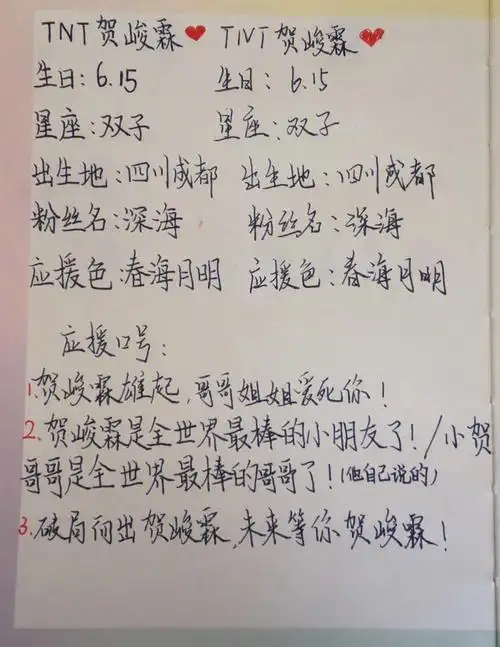 TNT贺峻霖❤ TNT贺峻霖❤
生日:6.15 生日:6.15
星座:双子 星座:双子
出生地:四川成都 出生地:四川成都
粉丝名:深海 粉丝名:深海
应援色:春海月明 应援色:春海月明
应援口号:
1.贺峻霖雄起,哥哥姐姐爱死你!
2.贺峻霖是全世界最棒的小朋友了!/小贺
哥哥是全世界最棒的哥哥了!(他自己说的)
3.破局而出贺峻霖,未来等你贺峻霖!